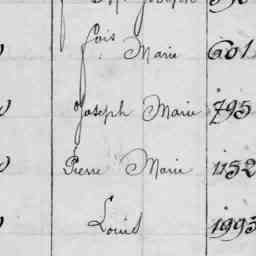 Joseph
fois Marie 601
Joseph Marie 795
Pierre Marie 1152
Louis 1993